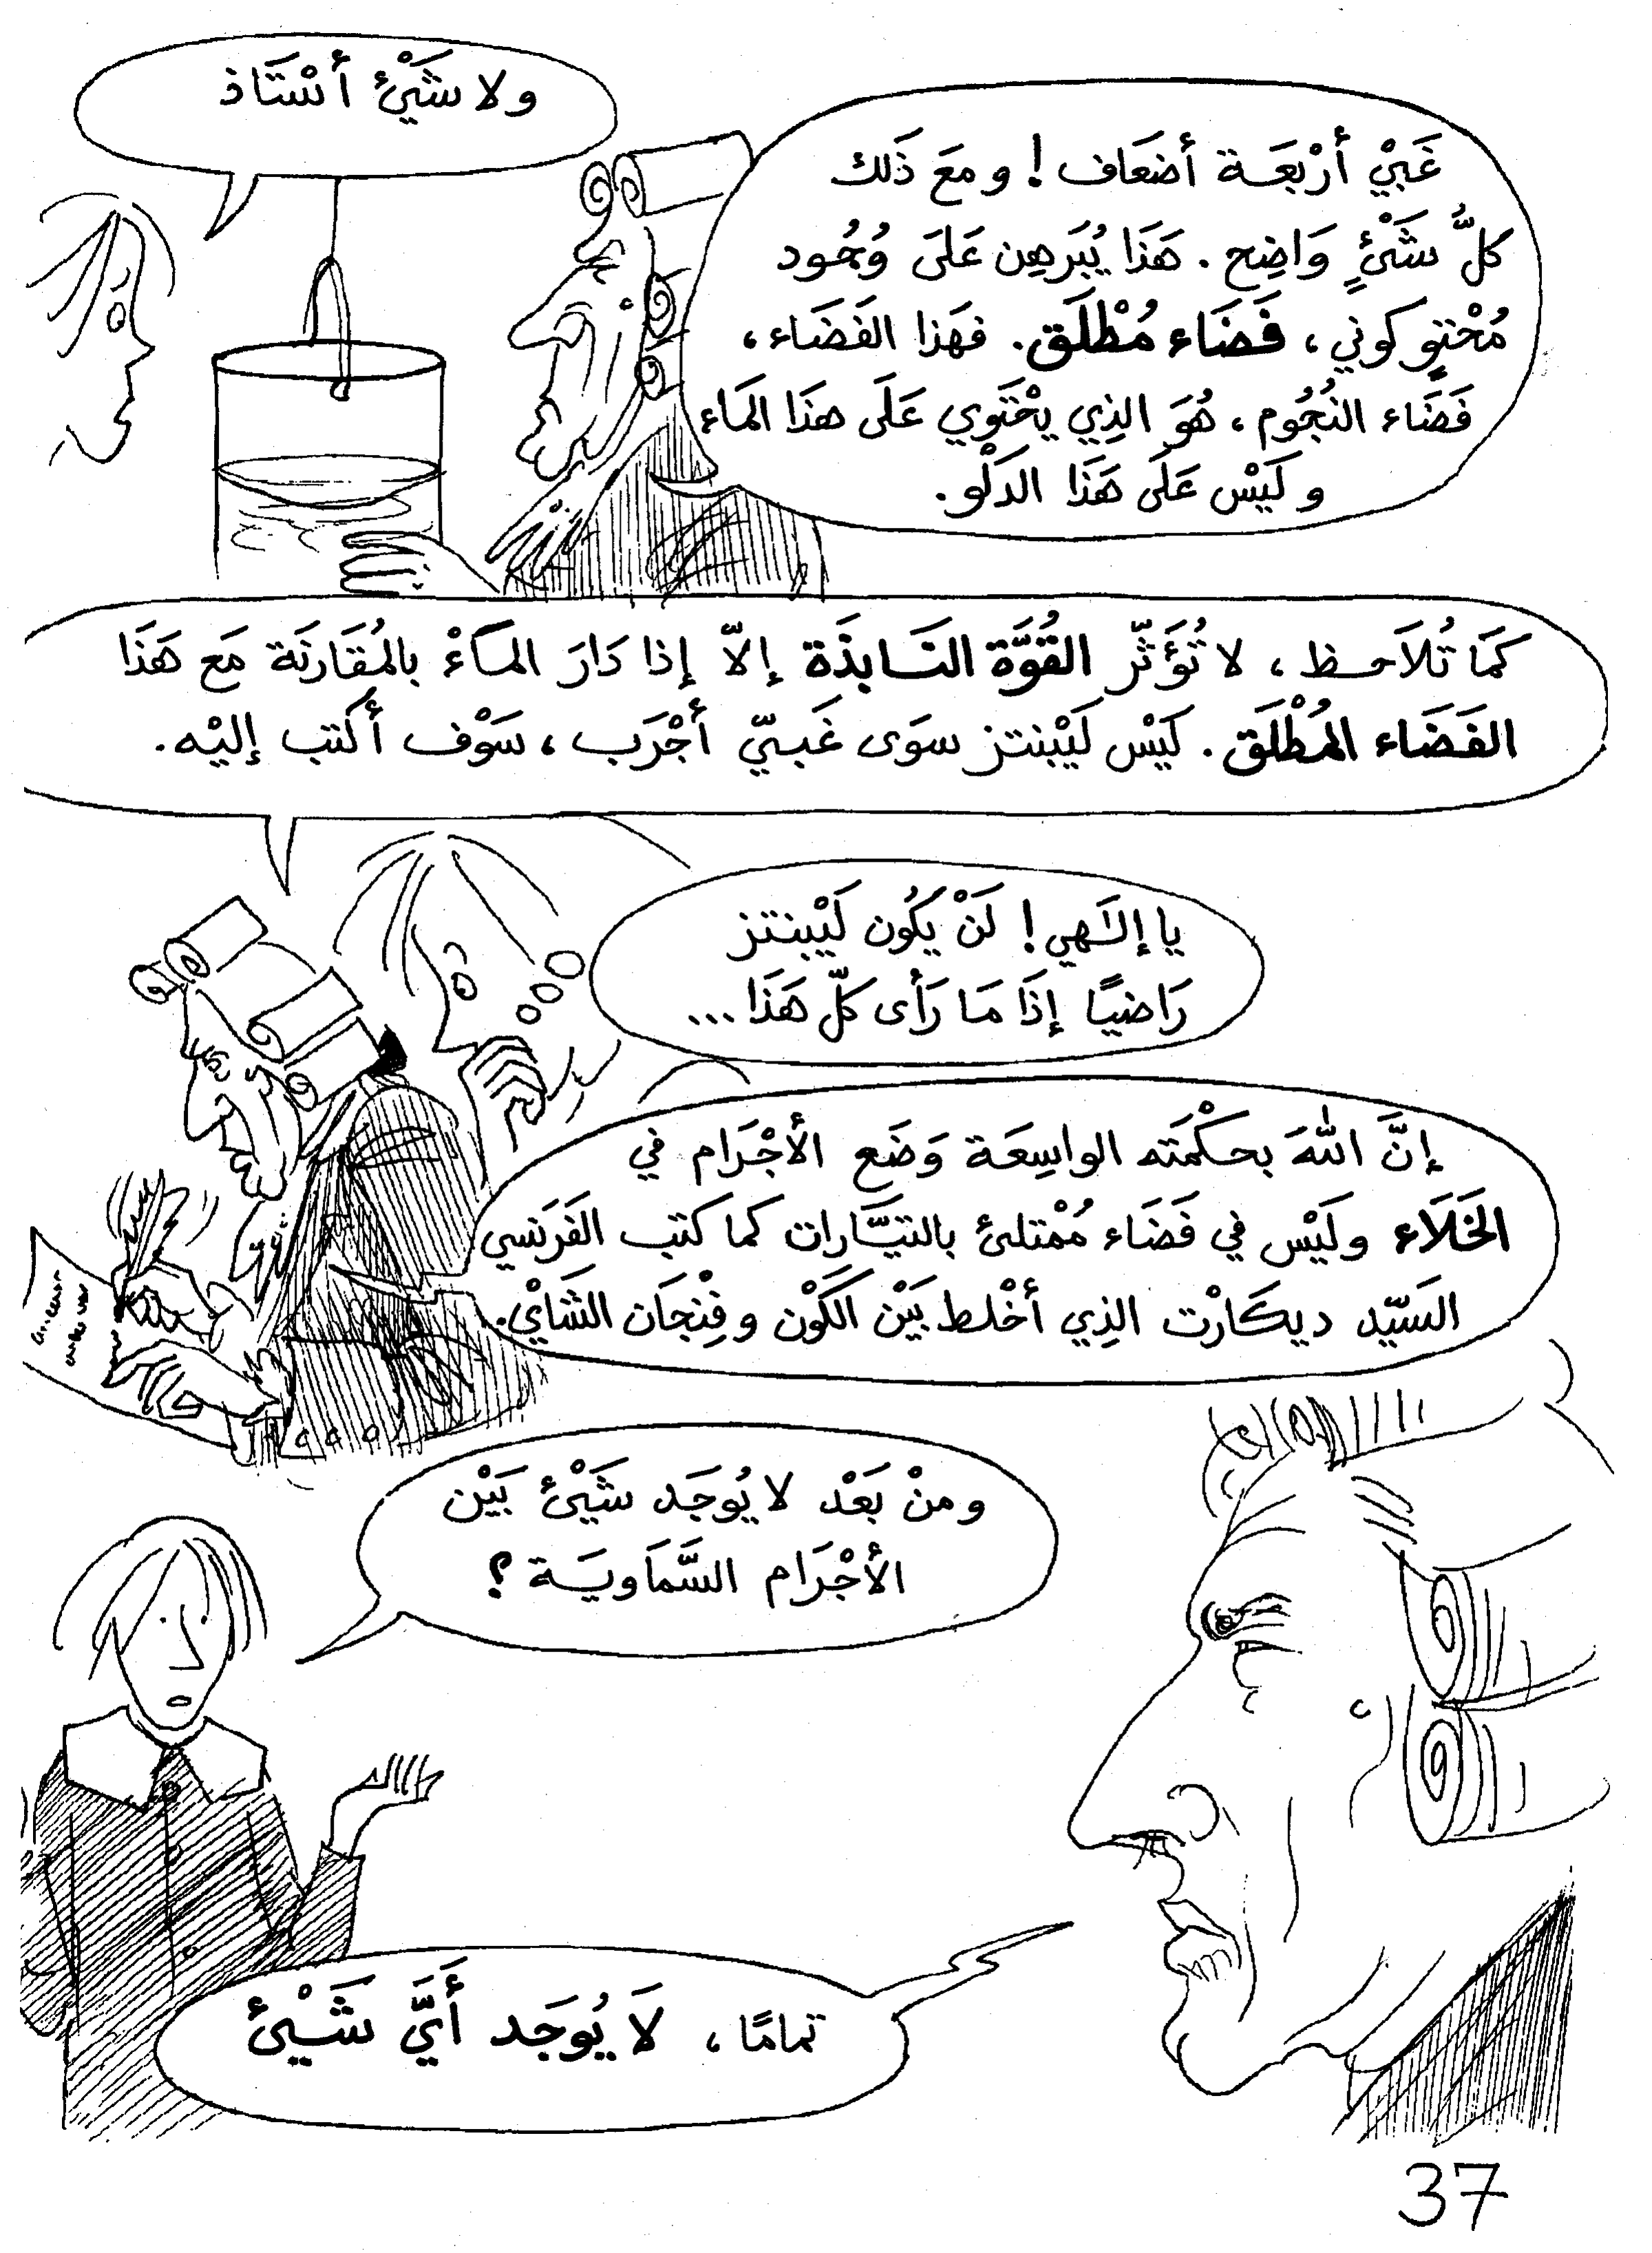 ولا شَيْئ أسْتَاذ
غَبيْ أرْبَعَة أضعَاف! و معَ ذَلك
كلُّ شَيْئٍ وَاضِح. هَذَا يُبَرهِن عَلَى وُجُود
مُحْتوٍ كوني، فَضَاء مُطْلَق. فهَذا الفَضَاء،
فَضَاء النُجُوم، هُوَ الذِي يحْتَوي عَلَى هذَا المَاء
و لَيْس عَلَى هَذَا الدَلْو.
كَمَا تُلاَحظ، لا تُؤَثّر القُوَّة النَابذَة إلاّ إذا دَارَ المَاءْ بالمُقَارنَة مَع هَذَا
الفَضَاء المُطْلَق. لَيْس لَيْبنتز سوَى غَبيّ أجْرَب، سَوْف أكْتب إليْه.
يا إلَاهي! لَنْ يَكُون لَيْبنتز
رَاضيًا إذَا مَا رَأى كلّ هَذَا...
إنَّ اللهَ بحكْمَته الواسِعَة وَضَع الأجْرَام في
الخَلَاء وليْس في فَضَاء مُمْتلئ بالتيَّارات كما كتب الفَرَنسي
السَيّد ديكَارْت الذِي أخْلط بَيْن الكَوْن و فِنْجَان الشَايْ.
ومنْ بَعْد لا يُوجَد شَيْئ بَيْن
الأجْرَام السَّمَاويَة ؟
تمامًا، لَا يُوجَد أَيَّ شَيْئ
37